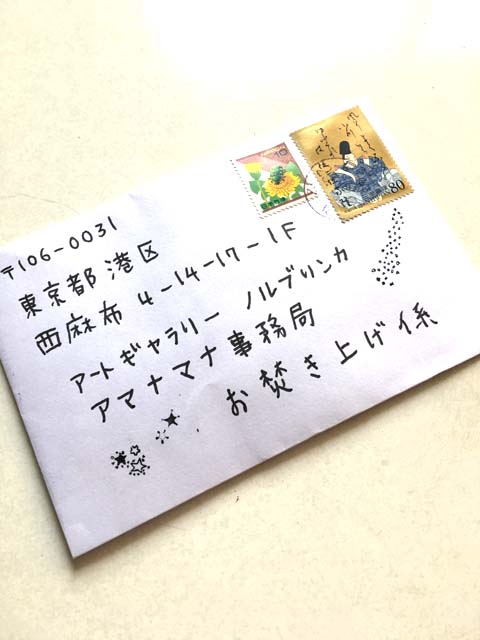 〒106-0031
東京都港区
西麻布 4-14-17-1F
アートギャラリー ノルブリンカ
アマナマナ事務局
お焚き上げ係
10
80